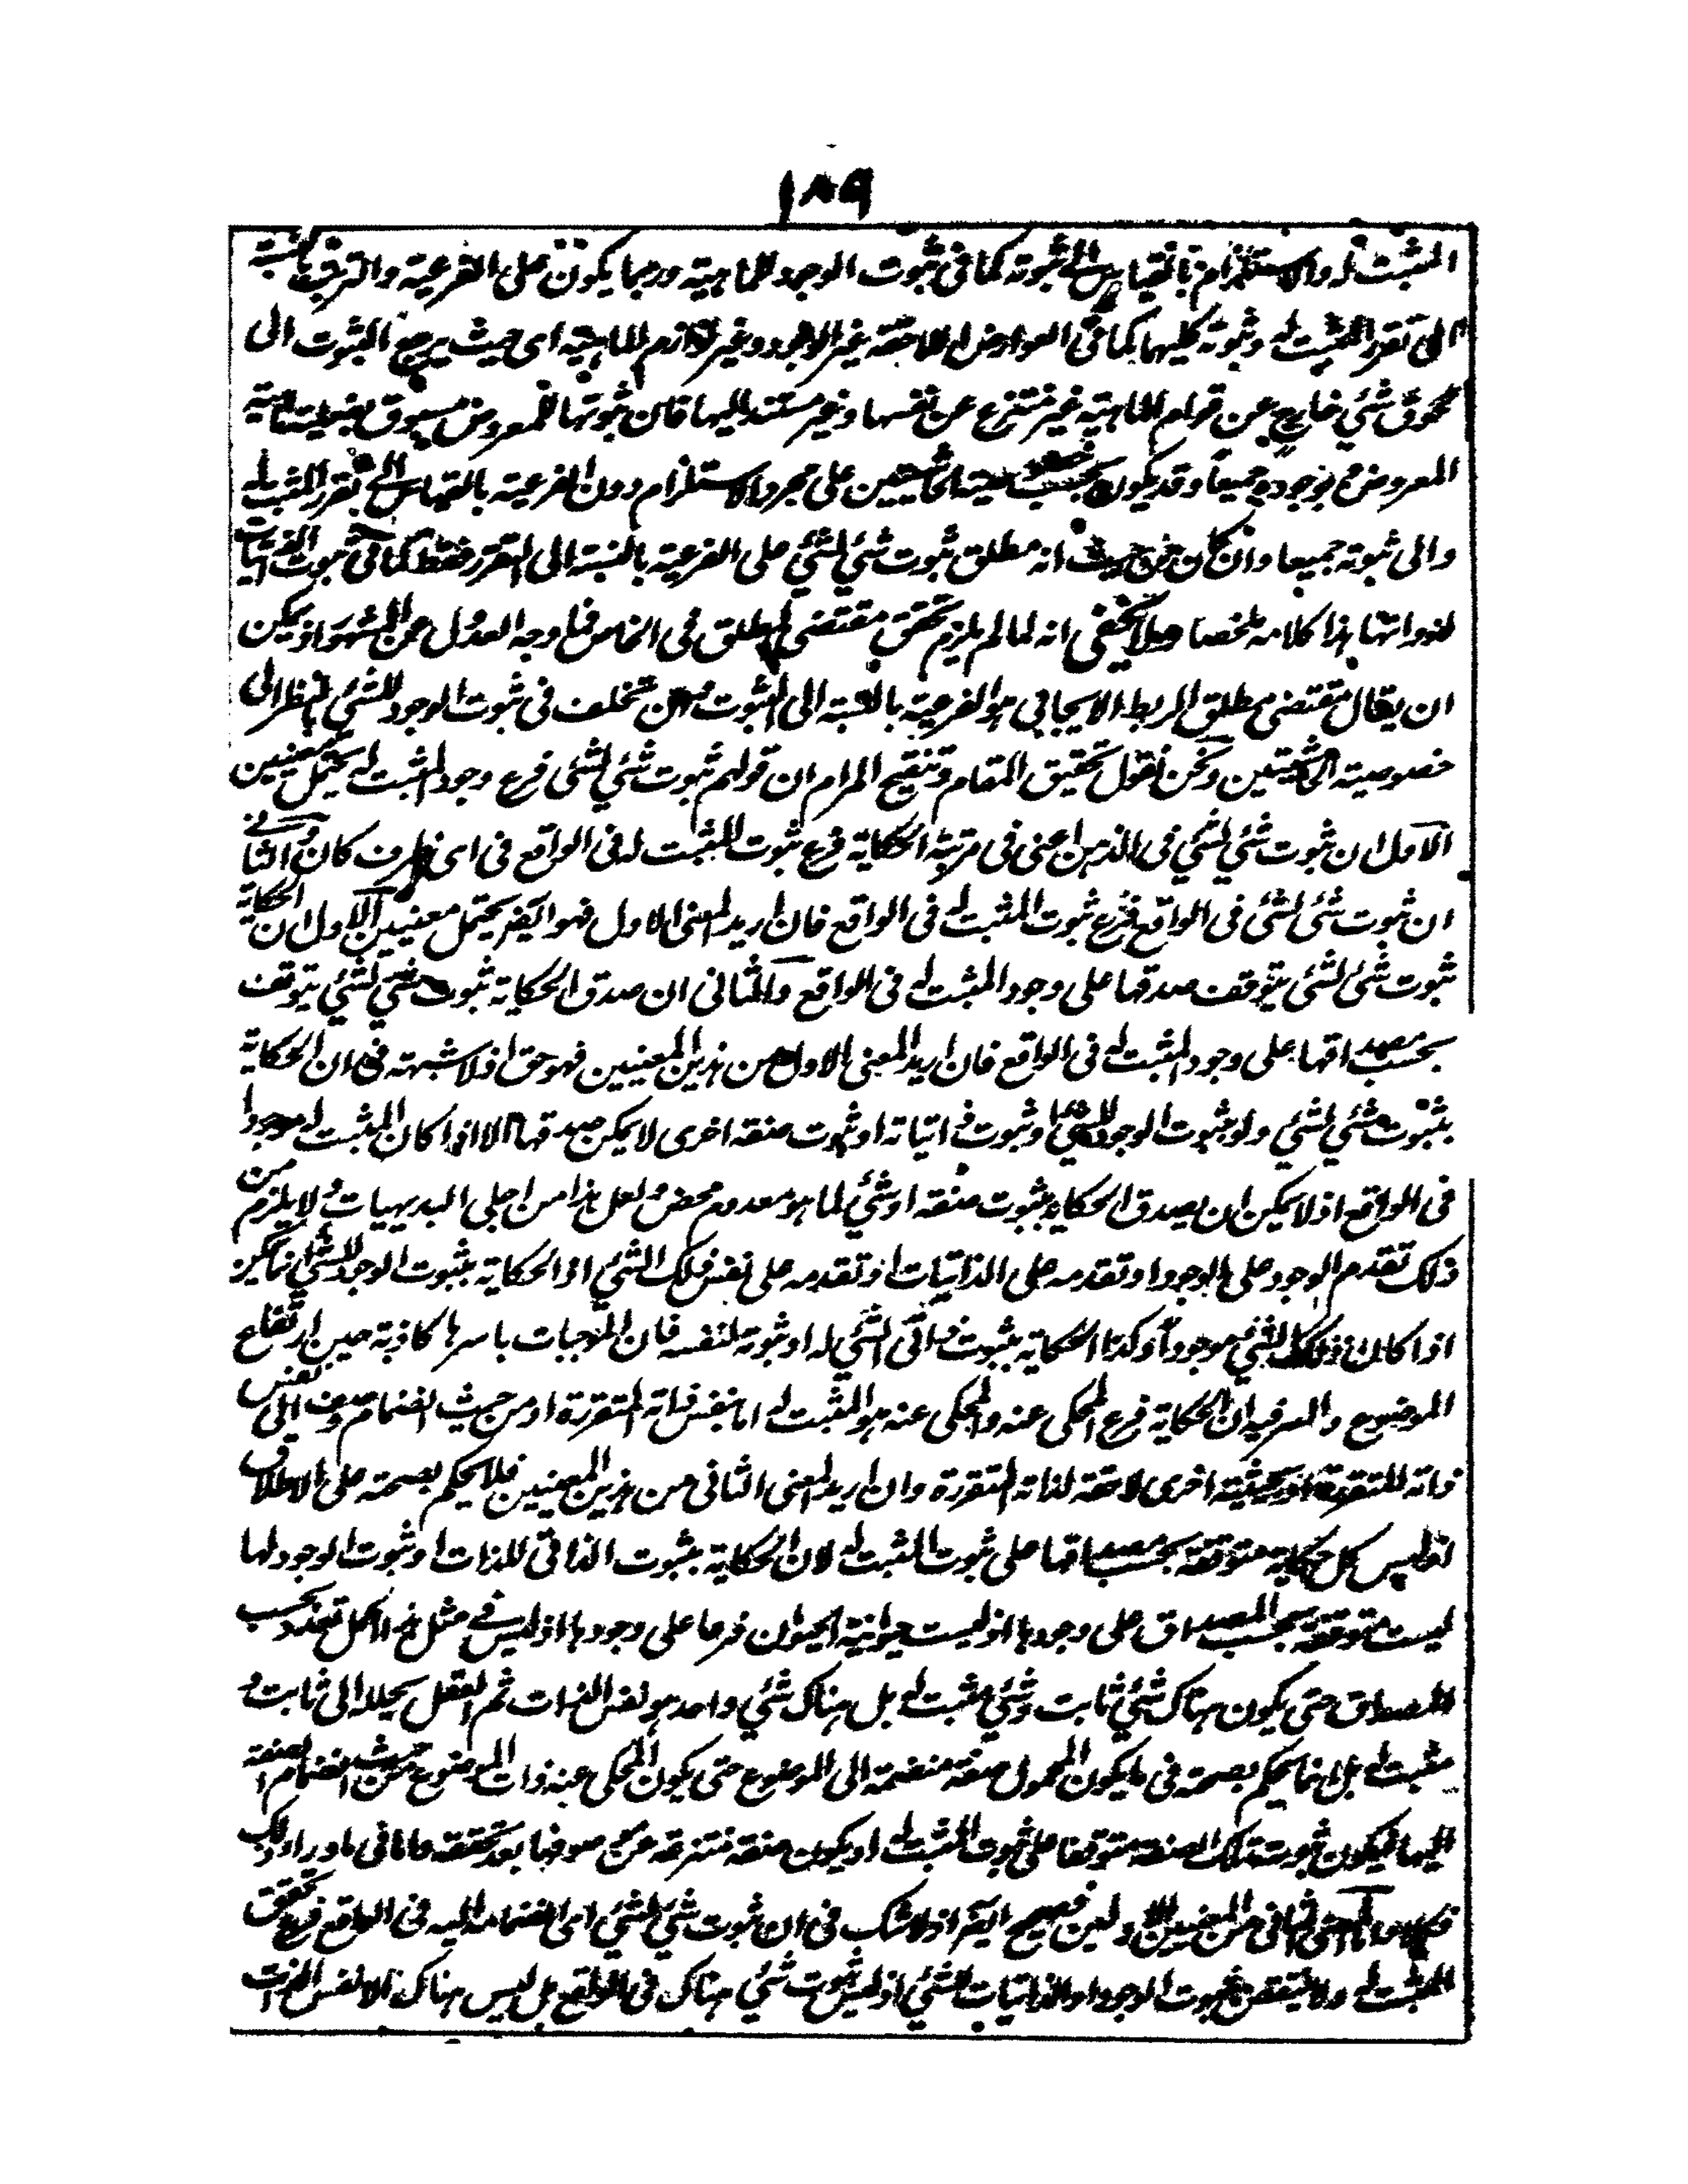 ١٨٩
المثبت له والاستلزام بالقياس الى ثبوته كما فى ثبوت الوجود للماهية وربما يكون على الفرعية والترتب بالنسبة
الى تقرر المثبت له وثبوته كليهما كما فى العوارض اللاحقة غير الوجود وغير لوازم الماهية اى حيث يرجع الثبوت الى
لحوق شئ خارج عن قوام الماهية غير منتزع عن نفسها وغير مستند اليها فان ثبوتها للمعروض مسبوق بفعلية ماهية
المعروض وبوجوده جميعا وقد يكون بحسب خصوصية الحاشيتين على مجرد الاستلزام دون الفرعية بالقياس الى تقرر المثبت له
والى ثبوته جميعا وان كان من حيث انه مطلق ثبوت شئ لشئ على الفرعية بالنسبة الى التقرر فقط كما فى ثبوت الذاتيات
لذواتها هذا كلامه ملخصا ولا يخفى انه لما لم يلزم تحقق مقتضى المطلق فى الخاص فما وجه العدول عن المشهور اذ يمكن
ان يقال مقتضى مطلق الربط الايجابى هو الفرعية بالنسبة الى الثبوت لكن تخلف فى ثبوت الوجود للشئ بالنظر الى
خصوصية الحاشيتين ونحن نقول تحقيق المقام وتنقيح المرام ان قولهم ثبوت شئ لشئ فرع وجود المثبت له يحتمل معنيين
الاول ان ثبوت شئ لشئ فى الذهن اعنى فى مرتبة الحكاية فرع ثبوت المثبت له فى الواقع فى اى ظرف كان والثانى
ان ثبوت شئ لشئ فى الواقع فرع ثبوت المثبت له فى الواقع فان اريد المعنى الاول فهو ايضا يحتمل معنيين الاول ان الحكاية
ثبوت شئ لشئ يتوقف صدقها على وجود المثبت له فى الواقع والثانى ان صدق الحكاية ثبوت شئ لشئ يتوقف
بحسب مصداقها على وجود المثبت له فى الواقع فان اريد المعنى الاول من هذين المعنيين فهو حق اذ لا شبهة فى ان الحكاية
بثبوت شئ لشئ ولو بثبوت الوجود للشئ وثبوت ذاتياته او ثبوت صفة اخرى لا يمكن صدقها الا اذا كان المثبت له موجودا
فى الواقع اذ لا يمكن ان يصدق الحكاية بثبوت صفة او شئ لما هو معدوم محض ولعل هذا من اجلى البديهيات ولا يلزم من
ذلك تقدم الوجود على الوجود او تقدمه على الذاتيات او تقدمه على نفس ذلك الشئ اذ الحكاية بثبوت الوجود للشئ انما يمكن
اذا كان ذلك الشئ موجودا وكذا الحكاية بثبوت ذاتى الشئ له او ثبوته لنفسه فان الموجبات باسرها كاذبة حين ارتفاع
الموضوع والسر فيه ان الحكاية فرع المحكى عنه والمحكى عنه هو المثبت له اما نفس ذاته المتقررة او من حيث انضمام وصف الى نفس
ذاته المتقررة او حيثية اخرى لاحقة لذاته المتقررة وان اريد المعنى الثانى من هذين المعنيين فلا يحكم بصحته على الاطلاق
اذ ليس كل حكاية متوقفة بحسب مصداقها على ثبوت المثبت له لان الحكاية بثبوت الذاتى للذات او ثبوت الوجود لها
ليست متوقفة بحسب المصداق على وجودها اذ ليست حيوانية الحيوان فرعا على وجودها اذ ليس فى مثل هذا الحمل تعدد بحسب
المصداق حتى يكون هناك شئ ثابت وشئ مثبت له بل هناك شئ واحد هو نفس الذات ثم العقل يحلله الى ثابت و
مثبت له بل انما يحكم بصحته فى ما يكون المحمول صفة منضمة الى الموضوع حتى يكون المحكى عنه ذات الموضوع من حيث انضمام الصفة
اليها فيكون ثبوت تلك الصفة متوقفا على ثبوت المثبت له او يكون صفة منتزعة عن موصوفها بعد تحققه واما فى ما وراء ذلك
فلا واما المعنى الثانى من المعنيين الاولين فصحيح ايضا اذ لا شك فى ان ثبوت شئ لشئ اى انضمامه اليه فى الواقع فرع تحقق
المثبت له ولا ينتقض بثبوت الوجود او الذاتيات للشئ اذ ليس ثبوت شئ هناك فى الواقع بل ليس هناك الا نفس الذات